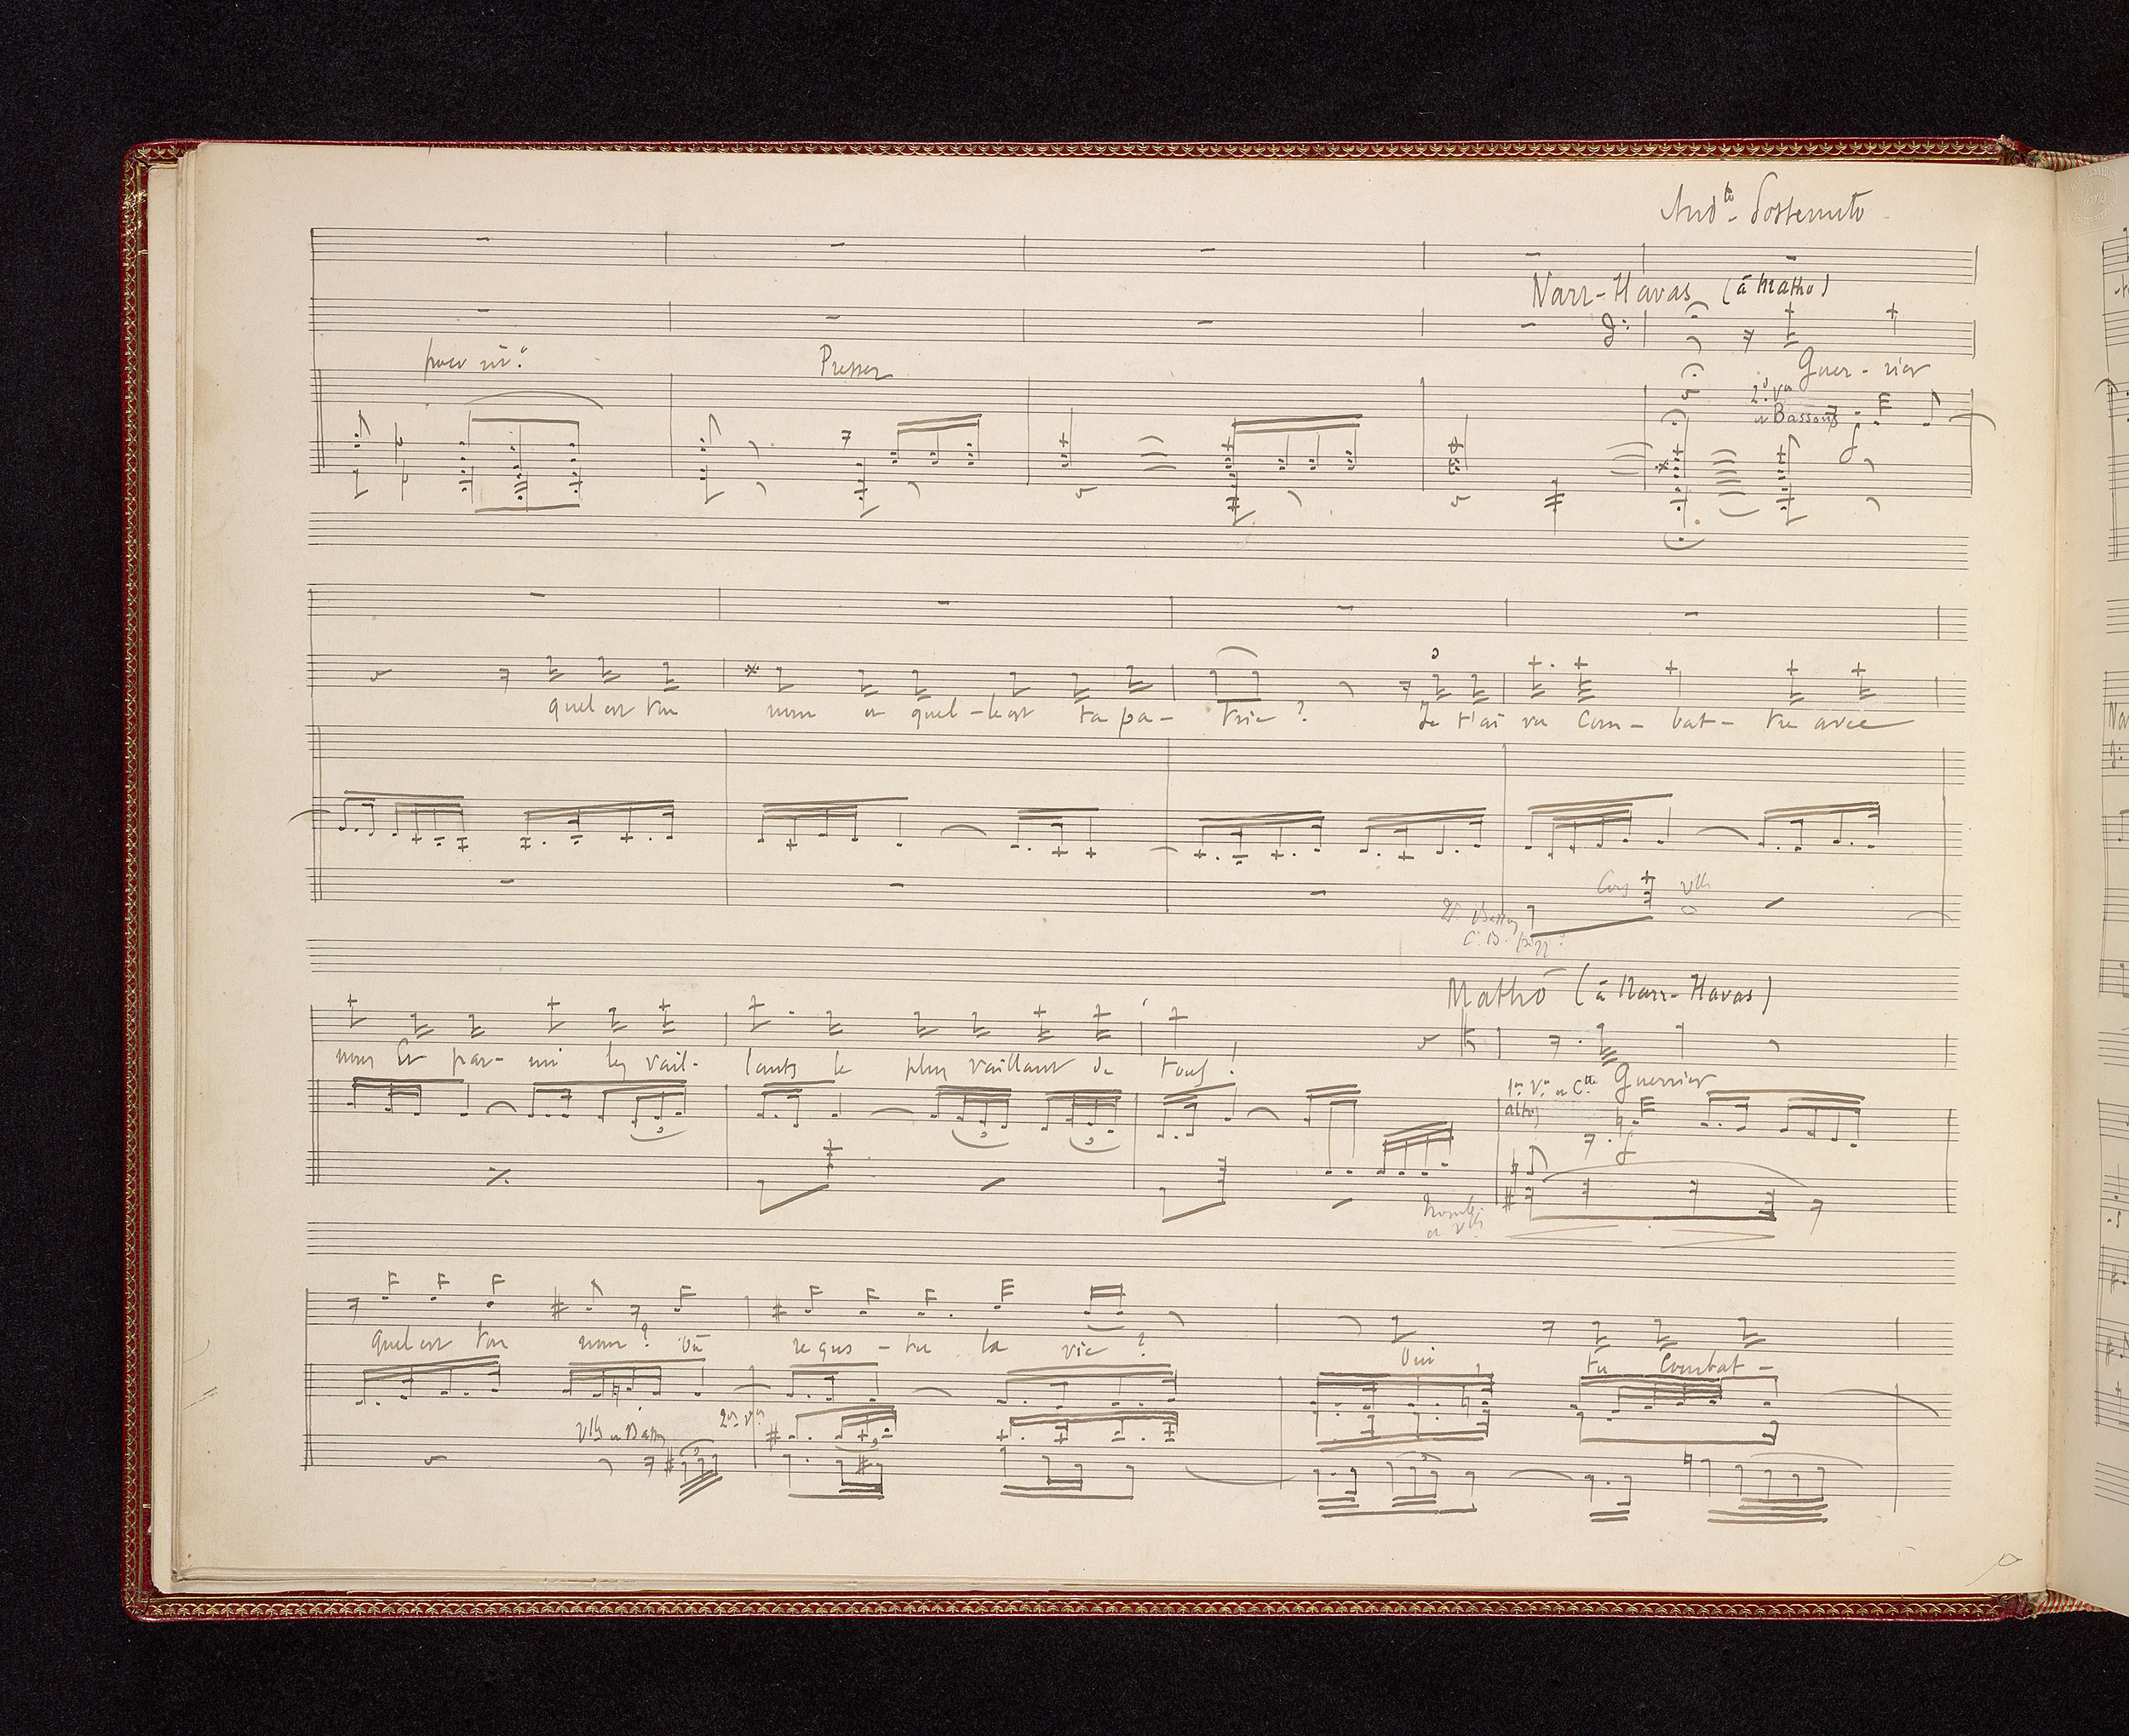 Andte Sostenuto
Narr-Havas (à Matho)
poco rit.
Presser
Guer - rier
2ds Vns
et Bassons
quel est ton nom et quel - le est ta pa - trie ? Je t'ai vu Com - bat - tre avec
Cors Vlles
Bassons
C. B. pizz.
Mathô (à Narr-Havas)
nous Et par - mi les vail - lants le plus vaillant de tous !
Guerrier
1ers Vns et Cl.tte
altos
et Vlles
quel est ton nom ? Où reçus - tu la vie ? Oui tu Combat -
Vlles et Bassons
2ds Vns